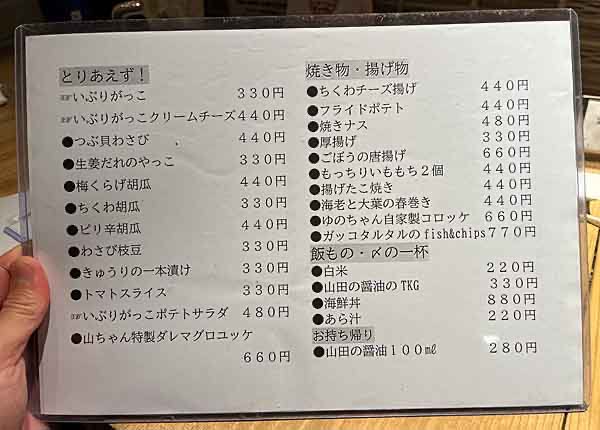 とりあえず！
☞いぶりがっこ 330円
☞いぶりがっこクリームチーズ 440円
●つぶ貝わさび 440円
●生姜だれのやっこ 330円
●梅くらげ胡瓜 440円
●ちくわ胡瓜 330円
●ピリ辛胡瓜 440円
●わさび枝豆 330円
●きゅうりの一本漬け 330円
●トマトスライス 330円
☞いぶりがっこポテトサラダ 480円
●山ちゃん特製ダレマグロユッケ
660円
焼き物・揚げ物
●ちくわチーズ揚げ 440円
●フライドポテト 440円
●焼きナス 480円
●厚揚げ 330円
●ごぼうの唐揚げ 660円
●もっちりいももち２個 440円
●揚げたこ焼き 440円
●海老と大葉の春巻き 440円
●ゆのちゃん自家製コロッケ 660円
●ガッコタルタルのfish&chips 770円
飯もの・〆の一杯
●白米 220円
●山田の醤油のTKG 330円
●海鮮丼 880円
●あら汁 220円
お持ち帰り
●山田の醤油１００㎖ 280円